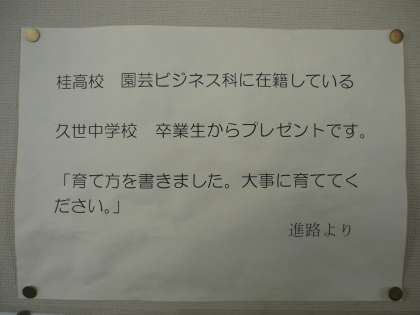 桂高校　園芸ビジネス科に在籍している
久世中学校　卒業生からプレゼントです。
「育て方を書きました。大事に育ててく
ださい。」
進路より